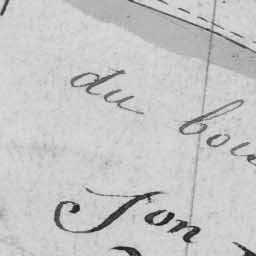 du bou
Jon